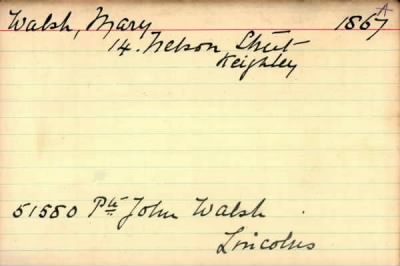 Walsh, Mary 1867 A
14. Nelson Street
Keighley
51580 Pte John Walsh.
Lincolns